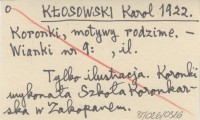 0 KŁOSOWSKI Karol 1922.
Koronki, motywy rodzime. –
Wianki nr 9: , il.
Tylko ilustracja. Koronki
wykonała Szkoła Koronkar-
ska w Zakopanem.